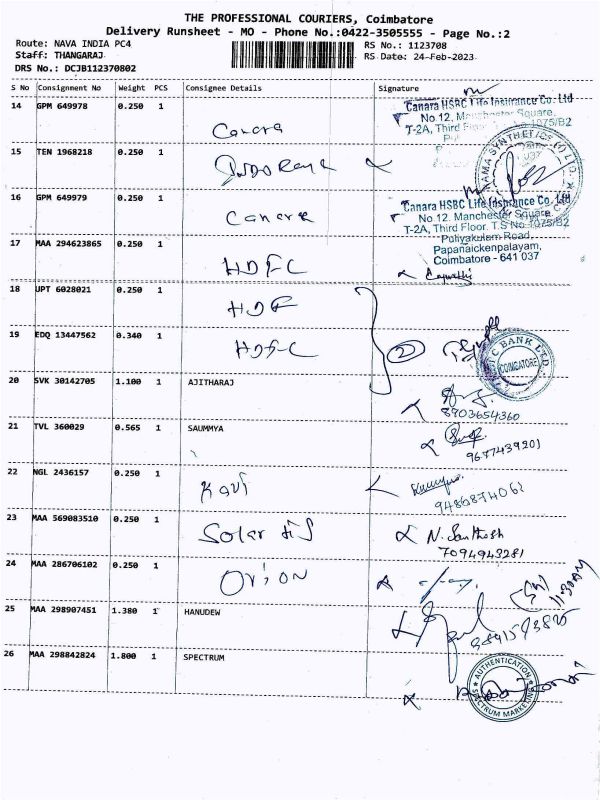 THE PROFESSIONAL COURIERS, Coimbatore
Delivery Runsheet - MO - Phone No.:0422-3505555 - Page No.:2
Route: NAVA INDIA PC4
RS No.: 1123708
Staff: THANGARAJ
RS Date: 24-Feb-2023
DRS No.: DCJB112370802
S No Consignment No Weight PCS Consignee Details Signature
14 GPM 649978 0.250 1 Canara
Canara HSBC Life Insurance Co. Ltd
No 12, Manchester Square,
T-2A, Third Floor 1075/B2
15 TEN 1968218 0.250 1
16 GPM 649979 0.250 1 Canara
Canara HSBC Life Insurance Co. Ltd
No 12, Manchester Square,
T-2A, Third Floor. T.S No 1075/B2
Puliyakulam Road,
Papanaickenpalayam,
Coimbatore - 641 037
17 MAA 294623865 0.250 1 HDFC
18 UPT 6028021 0.250 1 HDF
19 EDQ 13447562 0.340 1 HDFC
2
BANK LTD.
COIMBATORE
20 SVK 30142705 1.100 1 AJITHARAJ
8903654360
21 TVL 360029 0.565 1 SAUMMYA
9677439201
22 NGL 2436157 0.250 1 Kavi
23 MAA 569083510 0.250 1 Solar
N. Santhosh
7094943281
24 MAA 286706102 0.250 1 Orion
11:30AM
25 MAA 298907451 1.380 1 HANUDEW
26 MAA 298842824 1.800 1 SPECTRUM
AUTHENTICATION
SPECTRUM MARKETING